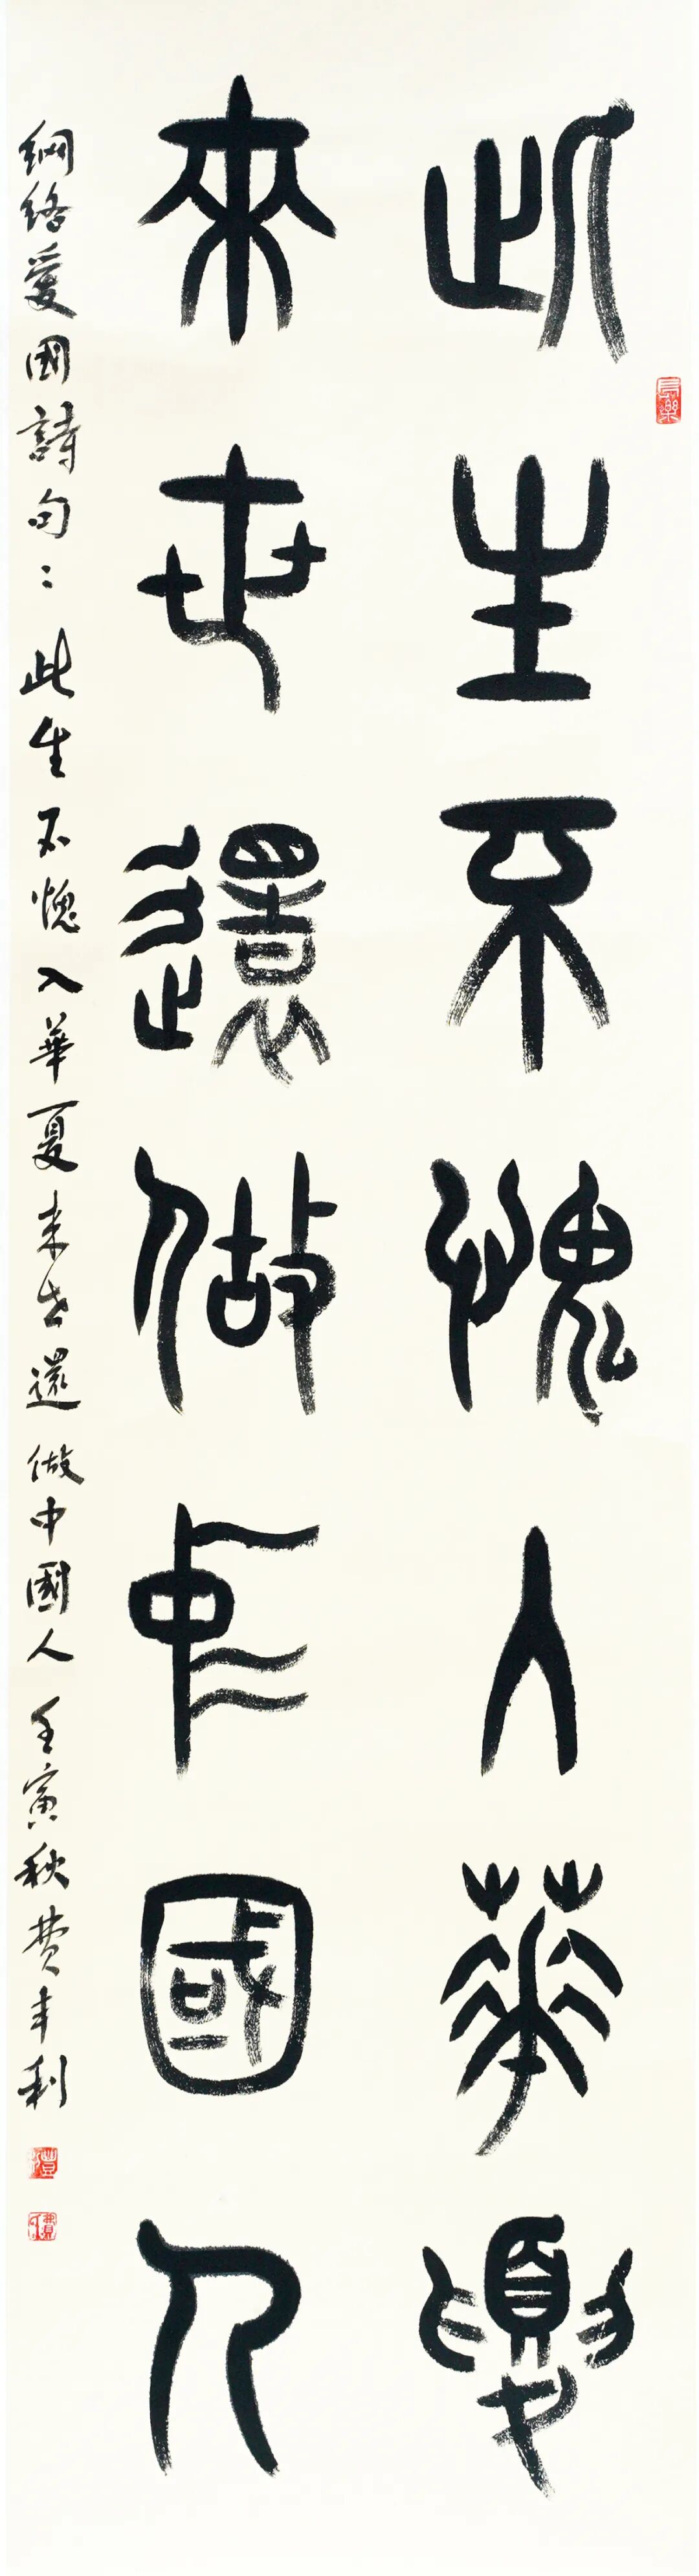 此生不愧入華夏
來世還做中國人
網絡愛國詩句：此生不愧入華夏来世還做中國人壬寅秋費丰利
長樂